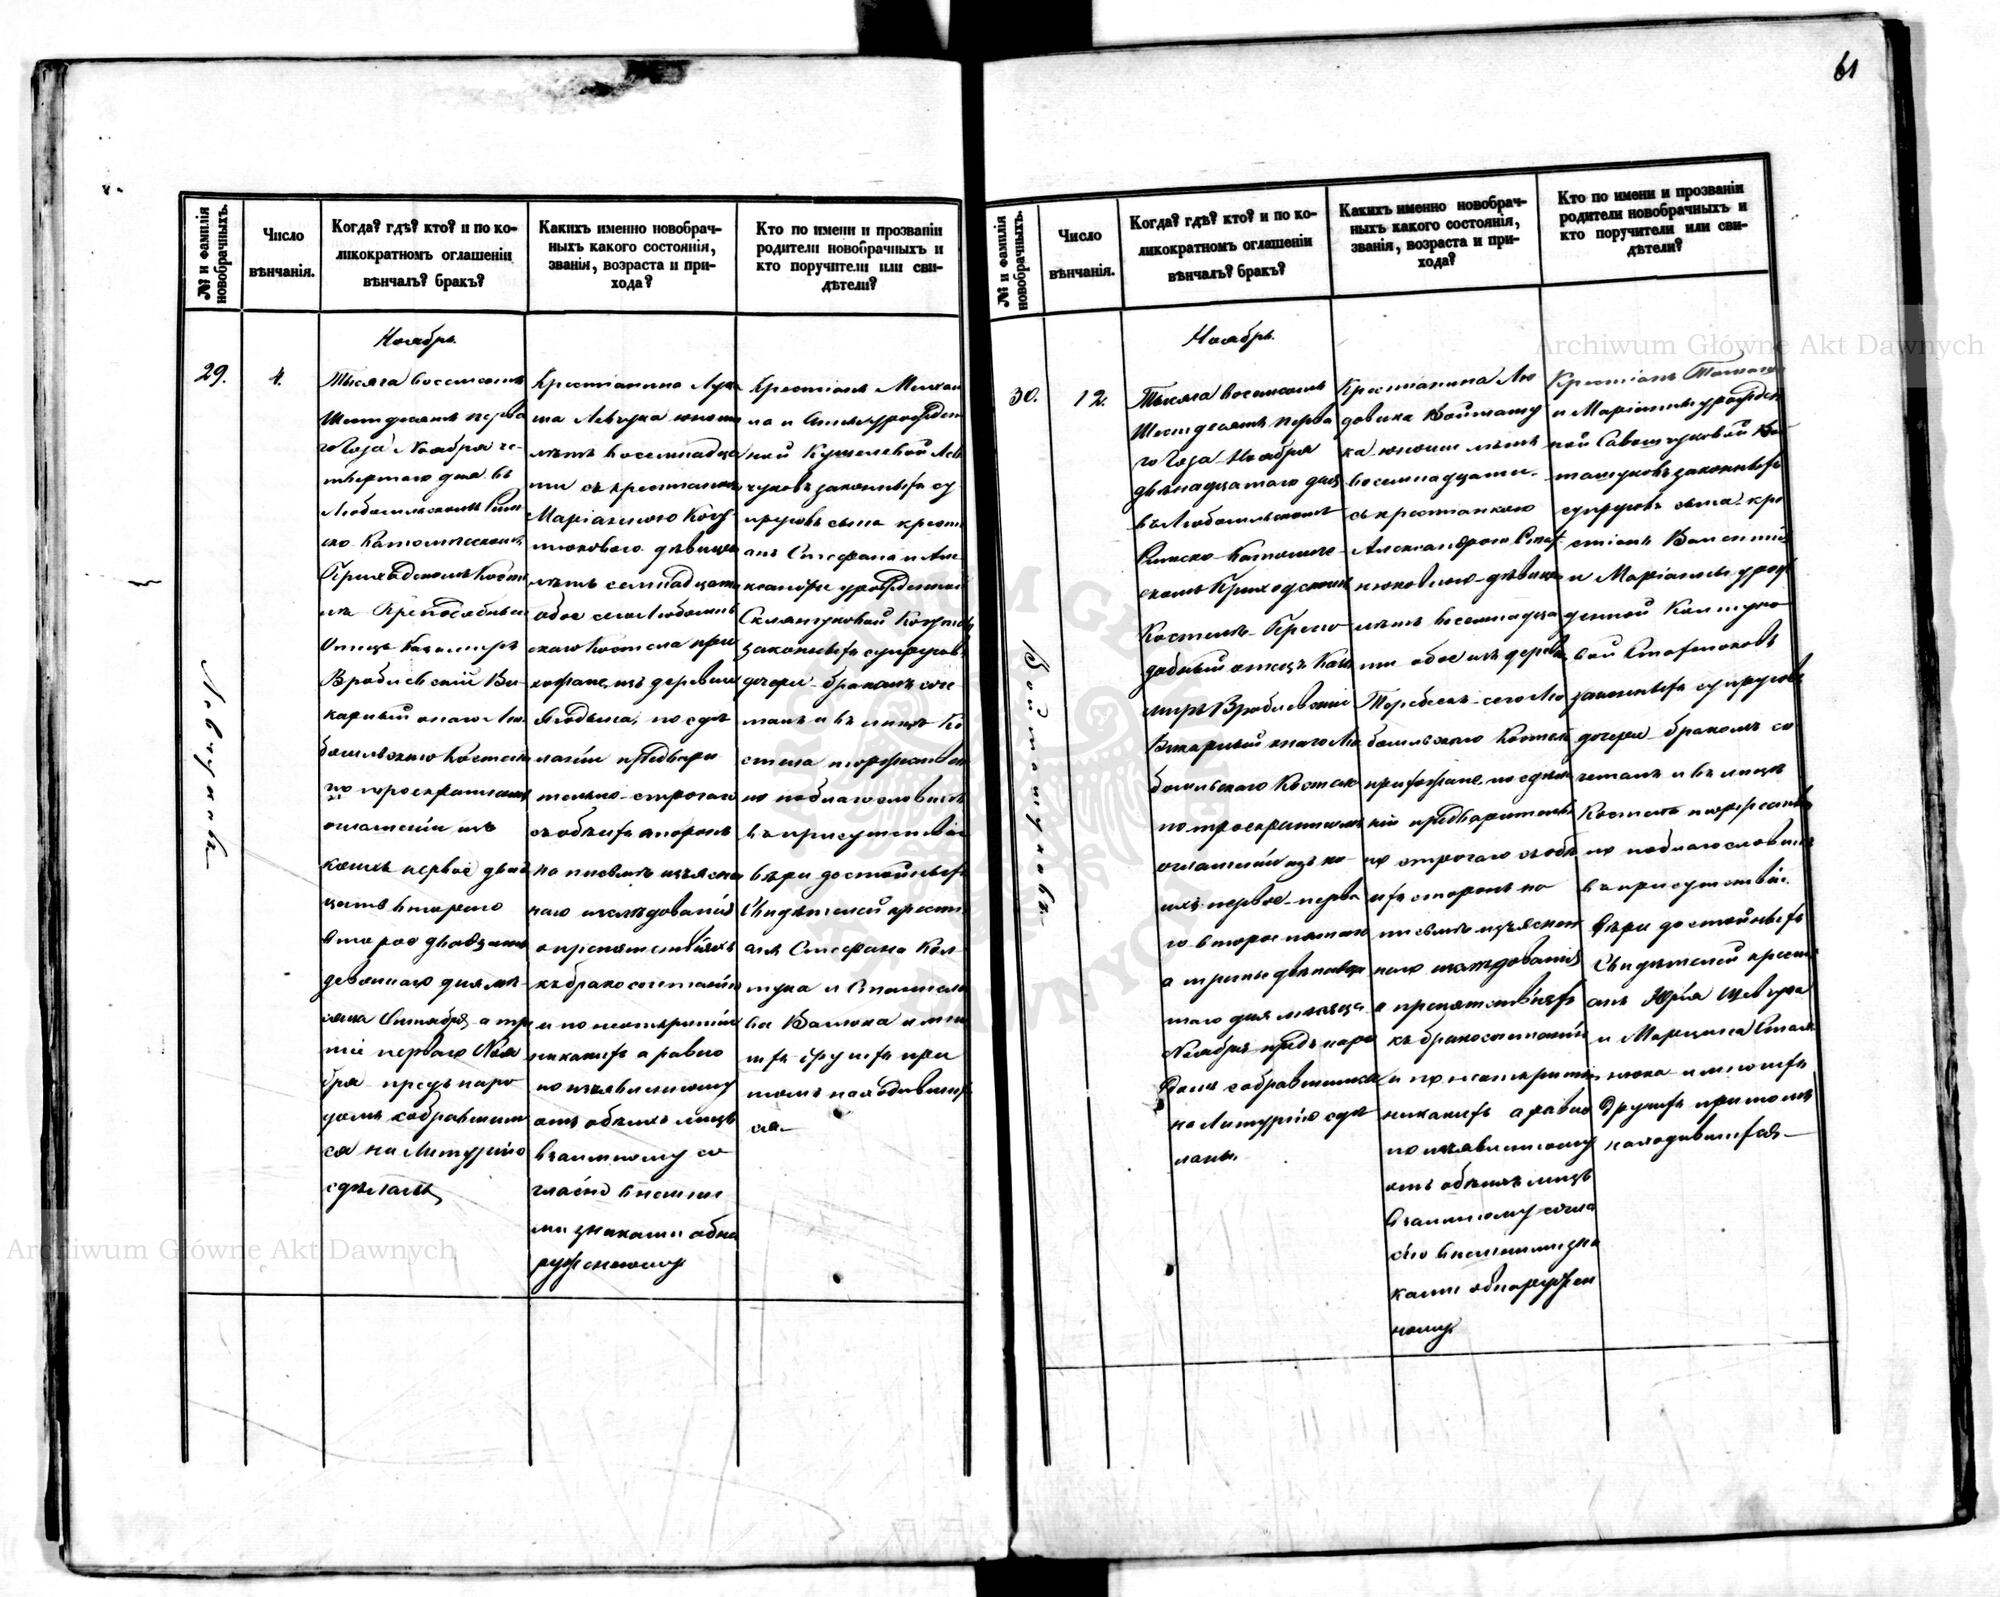 61
№ и фамилія новобрачныхъ.
Число вѣнчанія.
Когда? гдѣ? кто? и по ко-
ликократномъ оглашеніи
вѣнчалъ? бракъ?
Какихъ именно новобрач-
ныхъ какого состоянія,
званія, возраста и при-
хода?
Кто по имени и прозваніи
родители новобрачныхъ и
кто поручители или сви-
дѣтели?
29.
4.
Ноябрь.
Тысяча восемьсотъ
Шестдесятъ перва
го Года Ноября че-
твертаго дня въ
Любомльскомъ Рим
ско Католическомъ
Приходскомъ Косте
лѣ Преподобный
Отецъ Казимиръ
Врублевскій Ви-
карный онаго Лю
бомльскаго Костела
по троекратномъ
оглашеніи изъ
коихъ первое двад
цать втораго
второе двадцать
девятаго дня мѣ-
сяца Октября а тре
тіе перваго Ноя
бря предъ наро
домъ собравшим
ся на Литургію
сдѣланы,
Крестьянина Лука
ша Левчука юношу
лѣтъ восемнадца
ти съ крестьянкою
Маріанною Коз
діюковою дѣвицею
лѣтъ семнадцати
обое сего Любомль
скаго Костела при
хожане, изъ деревни
Ягодына, по сдѣ
ланіи предвари
тельно строгаго
съ обѣихъ сторонъ
на письмѣ изъясне
наго изслѣдованія
о препятствіяхъ
къ бракосочетанію
и по неоткрытіи
никакихъ а равно
по изъявленному
отъ обѣихъ лицъ
взаимному со
гласію внѣшни
ми знаками обна
руженному
Крестьянъ Михаи
ла и Анны урожден
ной Кушелевой Лев
чуковъ законныхъ су
пруговъ сына крестъ
янъ Стефана и Але
ксандры урожденной
законныхъ супруговъ
дочери бракомъ соче
талъ и въ лицѣ Ко
стела торжествен
но поблагословилъ
въ присутствіи
вѣри достойныхъ
Свидѣтелей кресть
янъ Стефана Кол
тука и Станисла
ва Валюка и мно
гихъ другихъ при
томъ находившихъ
ся.
Левчуковъ
№ и фамилія новобрачныхъ.
Число вѣнчанія.
Когда? гдѣ? кто? и по ко-
ликократномъ оглашеніи
вѣнчалъ? бракъ?
Какихъ именно новобрач-
ныхъ какого состоянія,
званія, возраста и при-
хода?
Кто по имени и прозваніи
родители новобрачныхъ и
кто поручители или сви-
дѣтели?
30.
12.
Ноябрь.
Тысяча восемьсотъ
Шестдесятъ перва
го Года Ноября
двѣнадцатаго дня
въ Любомльскомъ
Римско Католиче
скомъ Приходскомъ
Костелѣ Препо
добный отецъ Кази
миръ Врублевскій
Викарный онаго Лю
бомльскаго Костела
по троекратномъ
оглашеніи изъ ко-
ихъ первое перва
го второе
а третье двѣнадца
таго дня мѣсяца
Ноября предъ наро
домъ собравшимся
на Литургію сдѣ
ланы.
Крестьянина Лю
довика Войташу
ка юношу лѣтъ
восемнадцати
съ крестьянкою
Александрою Стаф
нюковною дѣвицею
лѣтъ восемнадца
ти обое изъ деревни
сего Лю
бомльскаго Костела
прихожане, по сдѣла
ніи предваритель
но строгаго съ обѣ
ихъ сторонъ на
письмѣ изъяснен
наго изслѣдованія
о препятствіяхъ
къ бракосочетанію
и по неоткрытіи
никакихъ а равно
по изъявленному
отъ обѣихъ лицъ
взаимному согла
сію внѣшними зна
ками обнаружен
ному
Крестьянъ
и Маріанны урожден
ной Савошчуковой Вой
ташуковъ законныхъ
супруговъ сына кре
стьянъ Валентія
и Маріанны урож
денной Колтуко
вой Стафнюковъ
законныхъ супруговъ
дочери бракомъ со
четалъ и въ лицѣ
Костела торжествен
но поблагословилъ
въ присутствіи.
Вѣри достойныхъ
Свидѣтелей кресть
янъ Юрія Шевчука
и Марцина Стаф
нюка и многихъ
другихъ при томъ
находившихся.
Войташуковъ
Archiwum Główne Akt Dawnych
Archiwum Główne Akt Dawnych